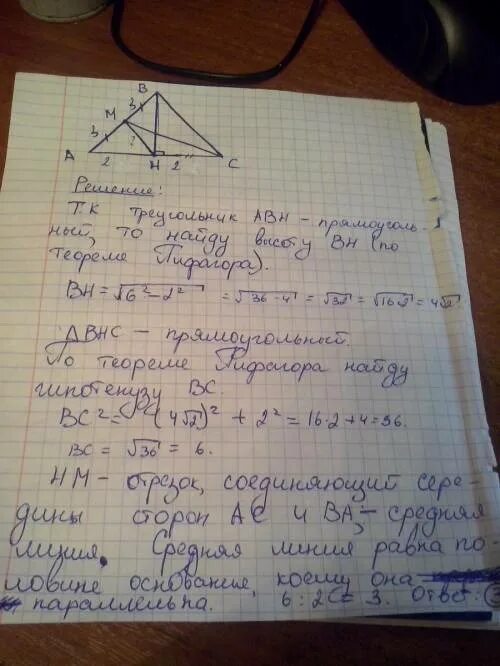 B
3
M
3
?
A
2
H
2
C
Решение:
Т.к треугольник ABH - прямоуголь-
ный, то найду высоту BH (по
теореме Пифагора).
BH = √6² - 2² = √36 - 4 = √32 = √16·2 = 4√2.
ΔBHC - прямоугольный.
По теореме Пифагора найду
гипотенузу BC.
BC² = (4√2)² + 2² = 16·2 + 4 = 36.
BC = √36 = 6.
HM - отрезок, соединяющий сере-
дины сторон AC и BA, - средняя
линия. Средняя линия равна по-
ловине основания, коему она
параллельна. 6 : 2 = 3. Ответ: 3